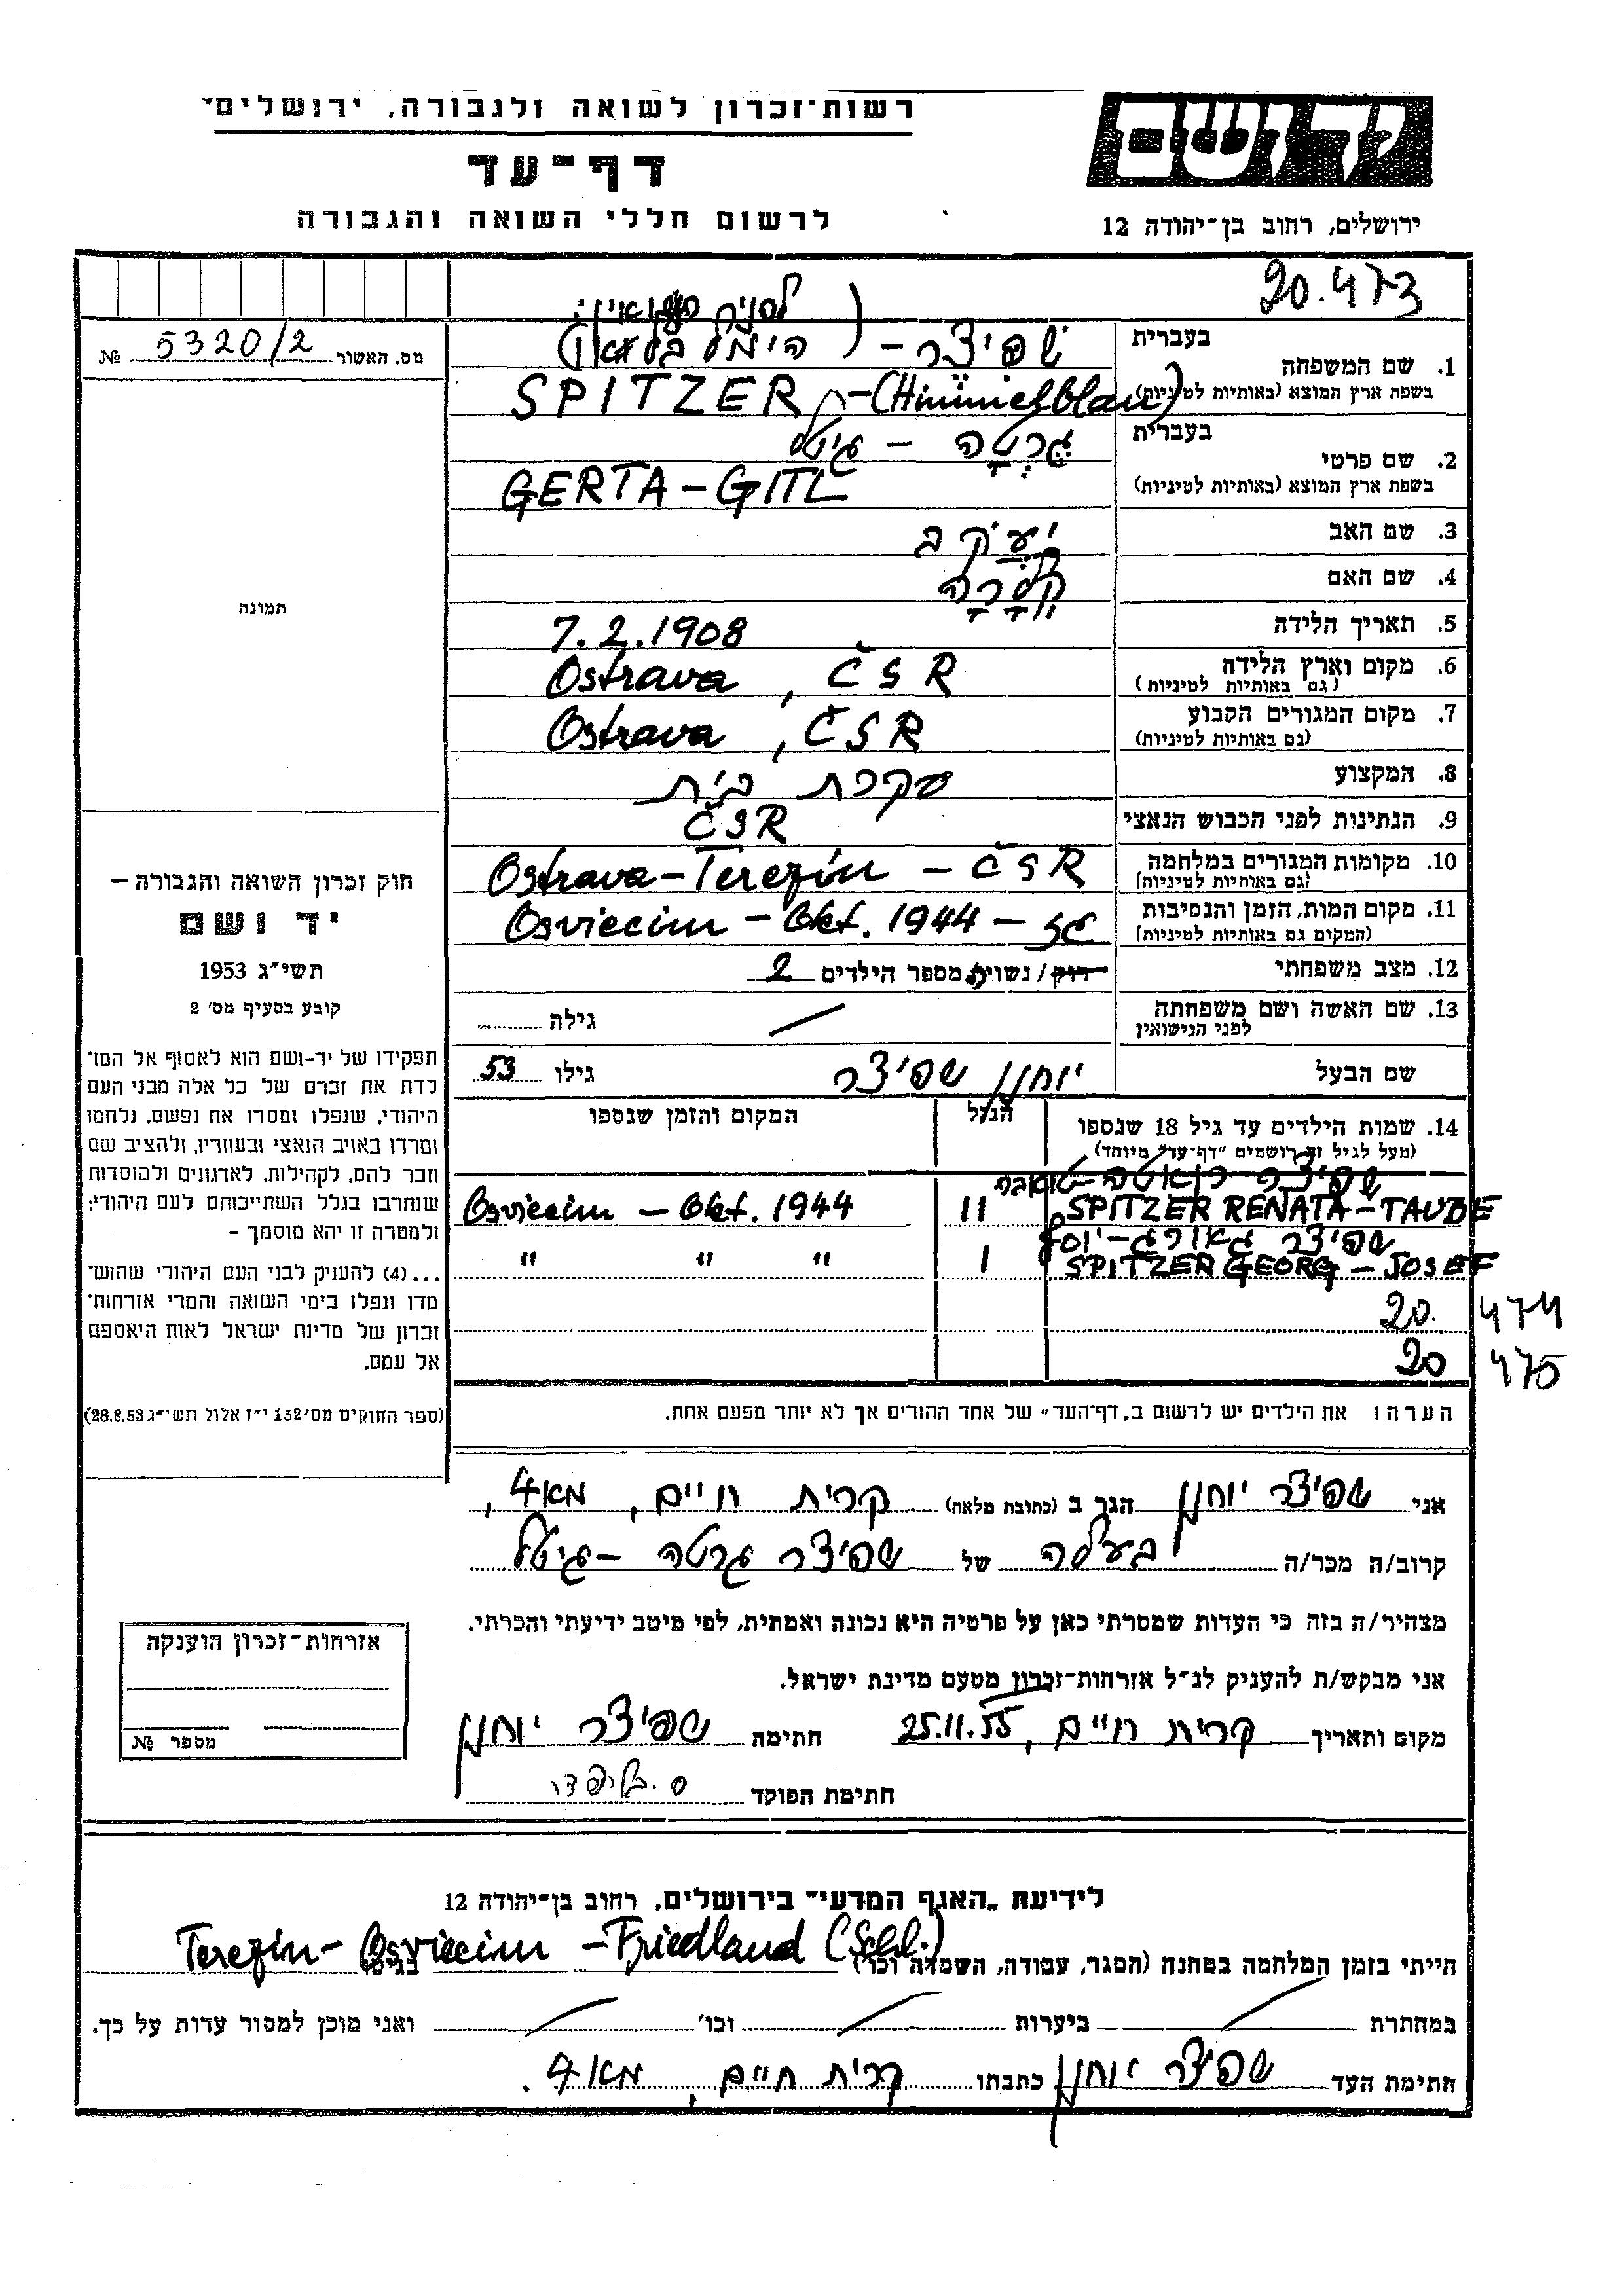 רשות-זכרון לשואה ולגבורה, ירושלים
יד ושם
דף-עד
לרשום חללי השואה והגבורה
ירושלים, רחוב בן-יהודה 12
20.473
מס. האשור 5320/2 №
לפני הנשואין:
1. שם המשפחה בעברית שפיצר - (הימלבלאו)
בשפת ארץ המוצא (באותיות לטיניות) SPITZER - (Himmelblau)
2. שם פרטי בעברית גרטה - גיטל
בשפת ארץ המוצא (באותיות לטיניות) GERTA - GITL
3. שם האב יעקב
4. שם האם קלרה
5. תאריך הלידה 7.2.1908
6. מקום וארץ הלידה (גם באותיות לטיניות) Ostrava, ČSR
7. מקום המגורים הקבוע (גם באותיות לטיניות) Ostrava, ČSR
8. המקצוע עקרת בית
9. הנתינות לפני הכבוש הנאצי ČSR
10. מקומות המגורים במלחמה (גם באותיות לטיניות) Ostrava - Terezín - ČSR
11. מקום המות, הזמן והנסיבות (המקום גם באותיות לטיניות) Osviecim - Okt. 1944 - גז
12. מצב משפחתי רוק / נשוי/ה מספר הילדים 2
13. שם האשה ושם משפחתה לפני הנישואין / גילה
שם הבעל יוחנן שפיצר גילו 53
14. שמות הילדים עד גיל 18 שנספו הגיל המקום והזמן שנספו
(מעל לגיל זה רושמים "דף-עד" מיוחד)
שפיצר רנאטה-טאובה
SPITZER RENATA - TAUBE 11 Osviecim - Okt. 1944
שפיצר גאורג-יוסף
SPITZER GEORG - JOSEF 1 " " "
20. 474
20 475
הערה: את הילדים יש לרשום ב"דף-העד" של אחד ההורים אך לא יותר מפעם אחת.
תמונה
חוק זכרון השואה והגבורה –
יד ושם
תשי"ג 1953
קובע בסעיף מס' 2
תפקידו של יד-ושם הוא לאסוף אל המו־
לדת את זכרם של כל אלה מבני העם
היהודי, שנפלו ומסרו את נפשם, נלחמו
ומרדו באויב הנאצי ובעוזריו, ולהציב שם
וזכר להם, לקהילות, לארגונים ולמוסדות
שנחרבו בגלל השתייכותם לעם היהודי;
ולמטרה זו יהא מוסמך –
...(4) להעניק לבני העם היהודי שהוש־
מדו ונפלו בימי השואה והמרי אזרחות־
זכרון של מדינת ישראל לאות היאספם
אל עמם.
(ספר החוקים מס' 132 י"ז אלול תשי"ג 28.8.53)
אני שפיצר יוחנן הגר ב (כתובת מלאה) קרית חיים, מאו 4,
קרוב/ה מכר/ה בעלה של שפיצר גרטה - גיטל
מצהיר/ה בזה כי העדות שמסרתי כאן על פרטיה היא נכונה ואמתית, לפי מיטב ידיעתי והכרתי.
אני מבקש/ת להעניק לנ"ל אזרחות-זכרון מטעם מדינת ישראל.
מקום ותאריך קרית חיים, 25.11.55 חתימה שפיצר יוחנן
חתימת הפוקד
אזרחות-זכרון הוענקה
מספר №
לידיעת "האגף המדעי" בירושלים, רחוב בן-יהודה 12
הייתי בזמן המלחמה במחנה (הסגר, עבודה, השמדה וכו') Terezín - Osviecim - Friedland (Schl.) בגיטו
במחתרת / ביערות / וכו' / ואני מוכן למסור עדות על כך.
חתימת העד שפיצר יוחנן כתבתו קרית חיים, מאו 4.